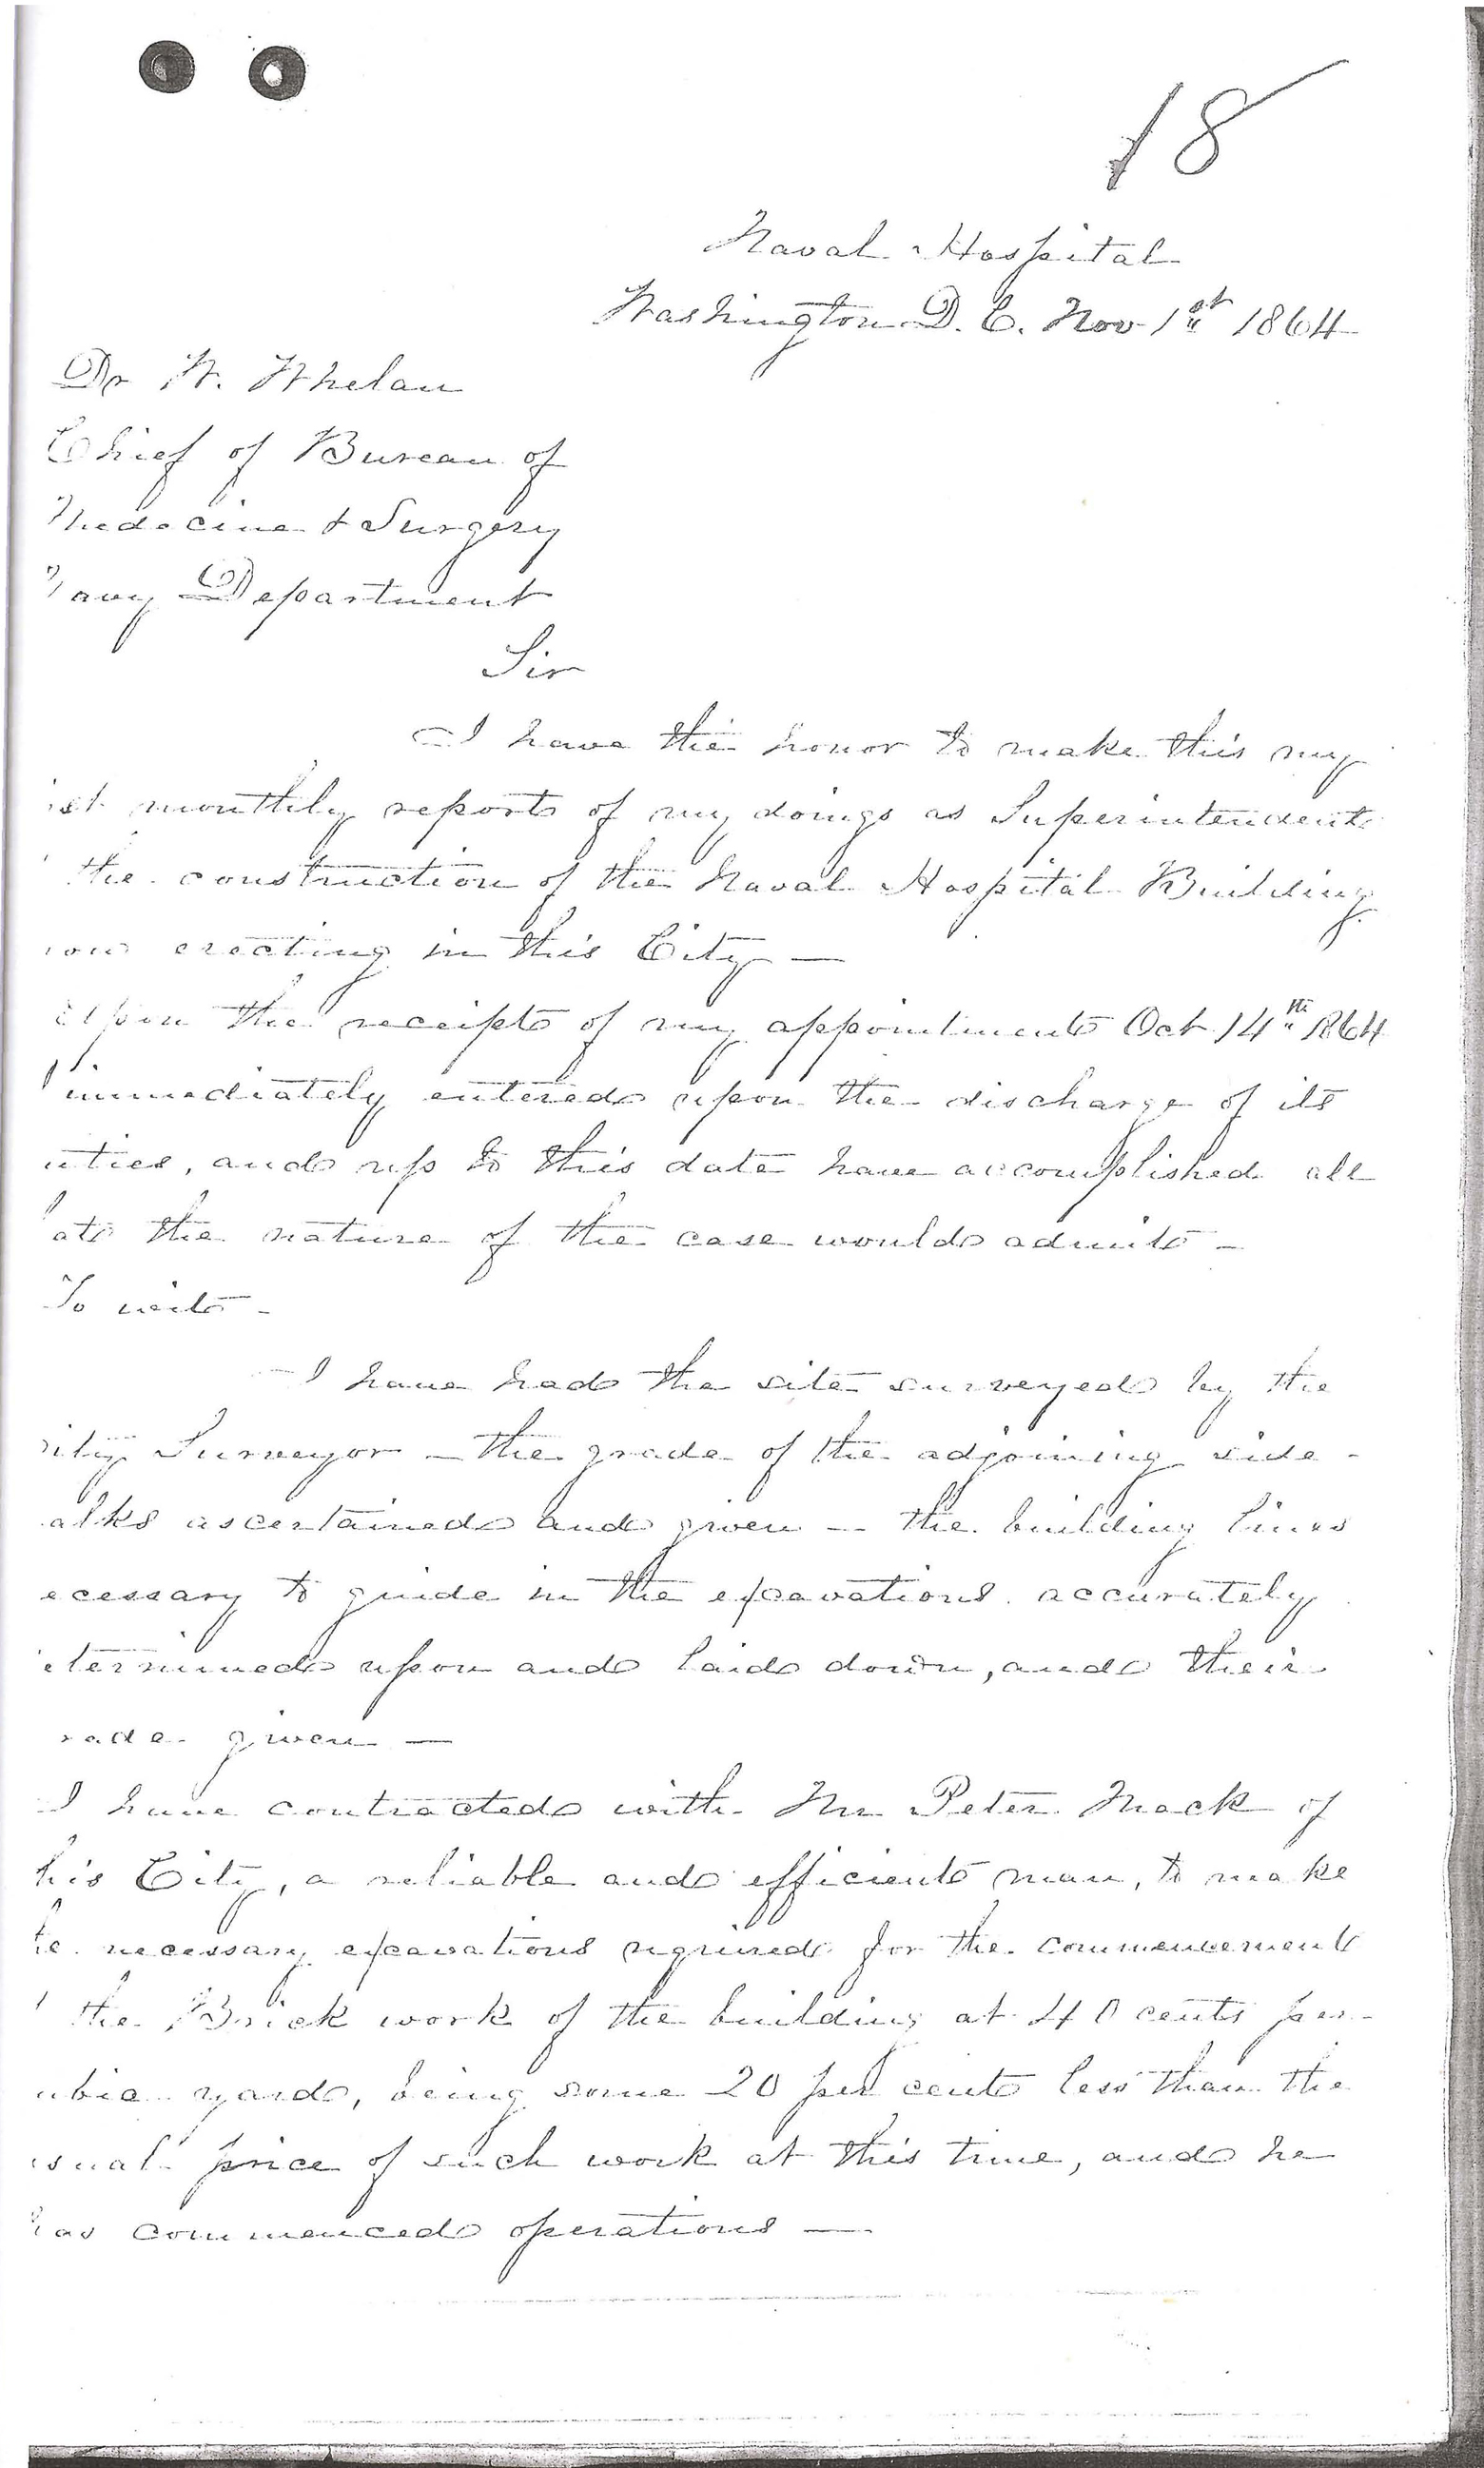 18
Naval Hospital
Washington D. C. Nov 1st 1864
Dr W. Whelan
Chief of Bureau of
Medecine & Surgery
Navy Department
Sir
I have the honor to make this my
1st monthly report of my doings as Superintendent
the construction of the Naval Hospital Building
now erecting in this City —
Upon the receipt of my appointment Oct 14th 1864
I immediately entered upon the discharge of its
uties, and up to this date have accomplished all
at the nature of the case would admit —
To wit —
I have had the site surveyed by the
City Surveyor — the grade of the adjoining side -
alks ascertained and given — the building lines
ecessary to guide in the excavations accurately
etermined upon and laid down, and their
rade given —
I have contracted with Mr Peter Mack of
his City, a reliable and efficient man, to make
he necessary excavations required for the commencement
the Brick work of the building at 40 cents per
ubic yard, being some 20 per cent less than the
sual price of such work at this time, and he
has commenced operations —